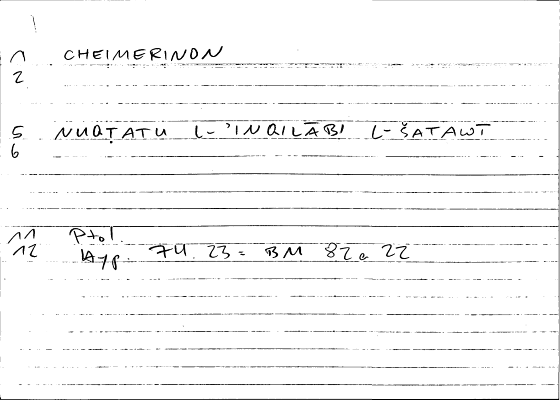 1 CHEIMERINON
2
5 NUQṬATU L-'INQILĀBI L-ŠATAWĪ
6
11 Ptol.
12 Hyp. 74. 23 = BM 82a 22